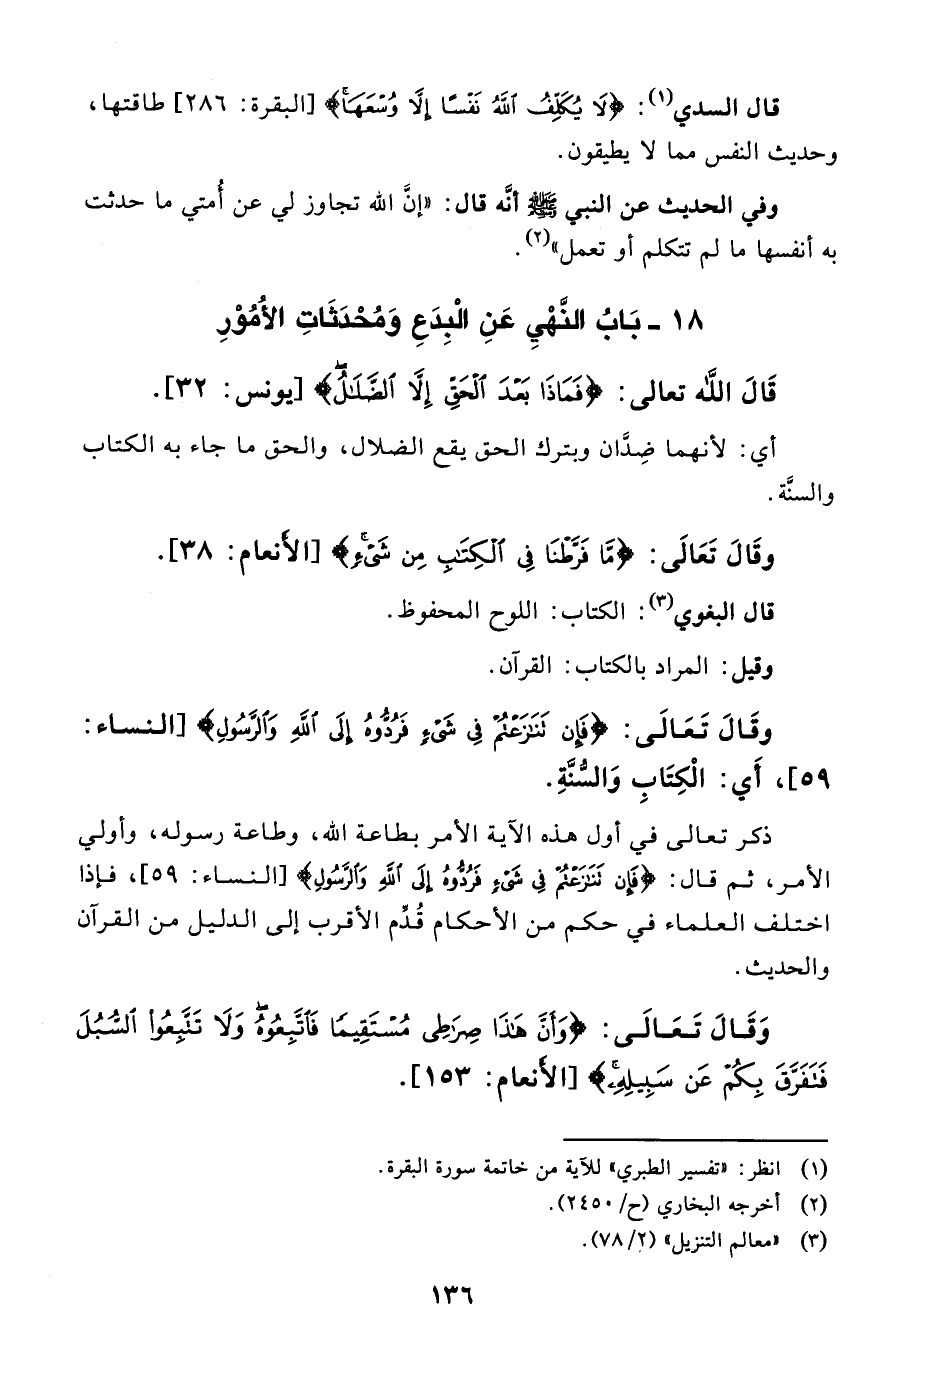 قال السدي(١): ﴿لَا يُكَلِّفُ ٱللَّهُ نَفْسًا إِلَّا وُسْعَهَاۚ﴾ [البقرة: ٢٨٦] طاقتها،
وحديث النفس مما لا يطيقون.
وفي الحديث عن النبي ﷺ أنَّه قال: «إنَّ الله تجاوز لي عن أُمتي ما حدثت
به أنفسها ما لم تتكلم أو تعمل»(٢).
١٨ ـ بَابُ النَّهْيِ عَنِ الْبِدَعِ وَمُحْدَثَاتِ الأُمُوْرِ
قَالَ اللَّه تعالى: ﴿فَمَاذَا بَعْدَ ٱلْحَقِّ إِلَّا ٱلضَّلَٰلُۖ﴾ [يونس: ٣٢].
أي: لأنهما ضِدَّان وبترك الحق يقع الضلال، والحق ما جاء به الكتاب
والسنَّة.
وقَالَ تَعَالَى: ﴿مَّا فَرَّطْنَا فِى ٱلْكِتَٰبِ مِن شَىْءٍۚ﴾ [الأنعام: ٣٨].
قال البغوي(٣): الكتاب: اللوح المحفوظ.
وقيل: المراد بالكتاب: القرآن.
وقَالَ تَعَالَى: ﴿فَإِن تَنَٰزَعْتُمْ فِى شَىْءٍ فَرُدُّوهُ إِلَى ٱللَّهِ وَٱلرَّسُولِ﴾ [النساء:
٥٩]، أَي: الْكِتَابِ وَالسُّنَّةِ.
ذكر تعالى في أول هذه الآية الأمر بطاعة الله، وطاعة رسوله، وأولي
الأمر، ثم قال: ﴿فَإِن تَنَٰزَعْتُمْ فِى شَىْءٍ فَرُدُّوهُ إِلَى ٱللَّهِ وَٱلرَّسُولِ﴾ [النساء: ٥٩]، فإذا
اختلف العلماء في حكم من الأحكام قُدِّم الأقرب إلى الدليل من القرآن
والحديث.
وَقَالَ تَعَالَى: ﴿وَأَنَّ هَٰذَا صِرَٰطِى مُسْتَقِيمًا فَٱتَّبِعُوهُۖ وَلَا تَتَّبِعُوا۟ ٱلسُّبُلَ
فَتَفَرَّقَ بِكُمْ عَن سَبِيلِهِۦۚ﴾ [الأنعام: ١٥٣].
(١) انظر: «تفسير الطبري» للآية من خاتمة سورة البقرة.
(٢) أخرجه البخاري (ح/٢٤٥٠).
(٣) «معالم التنزيل» (٧٨/٢).
١٣٦